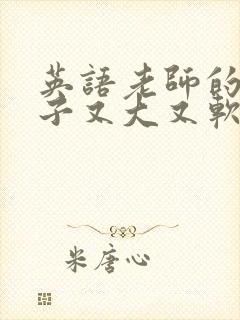 英語老師的
子又大又軟
米唐心